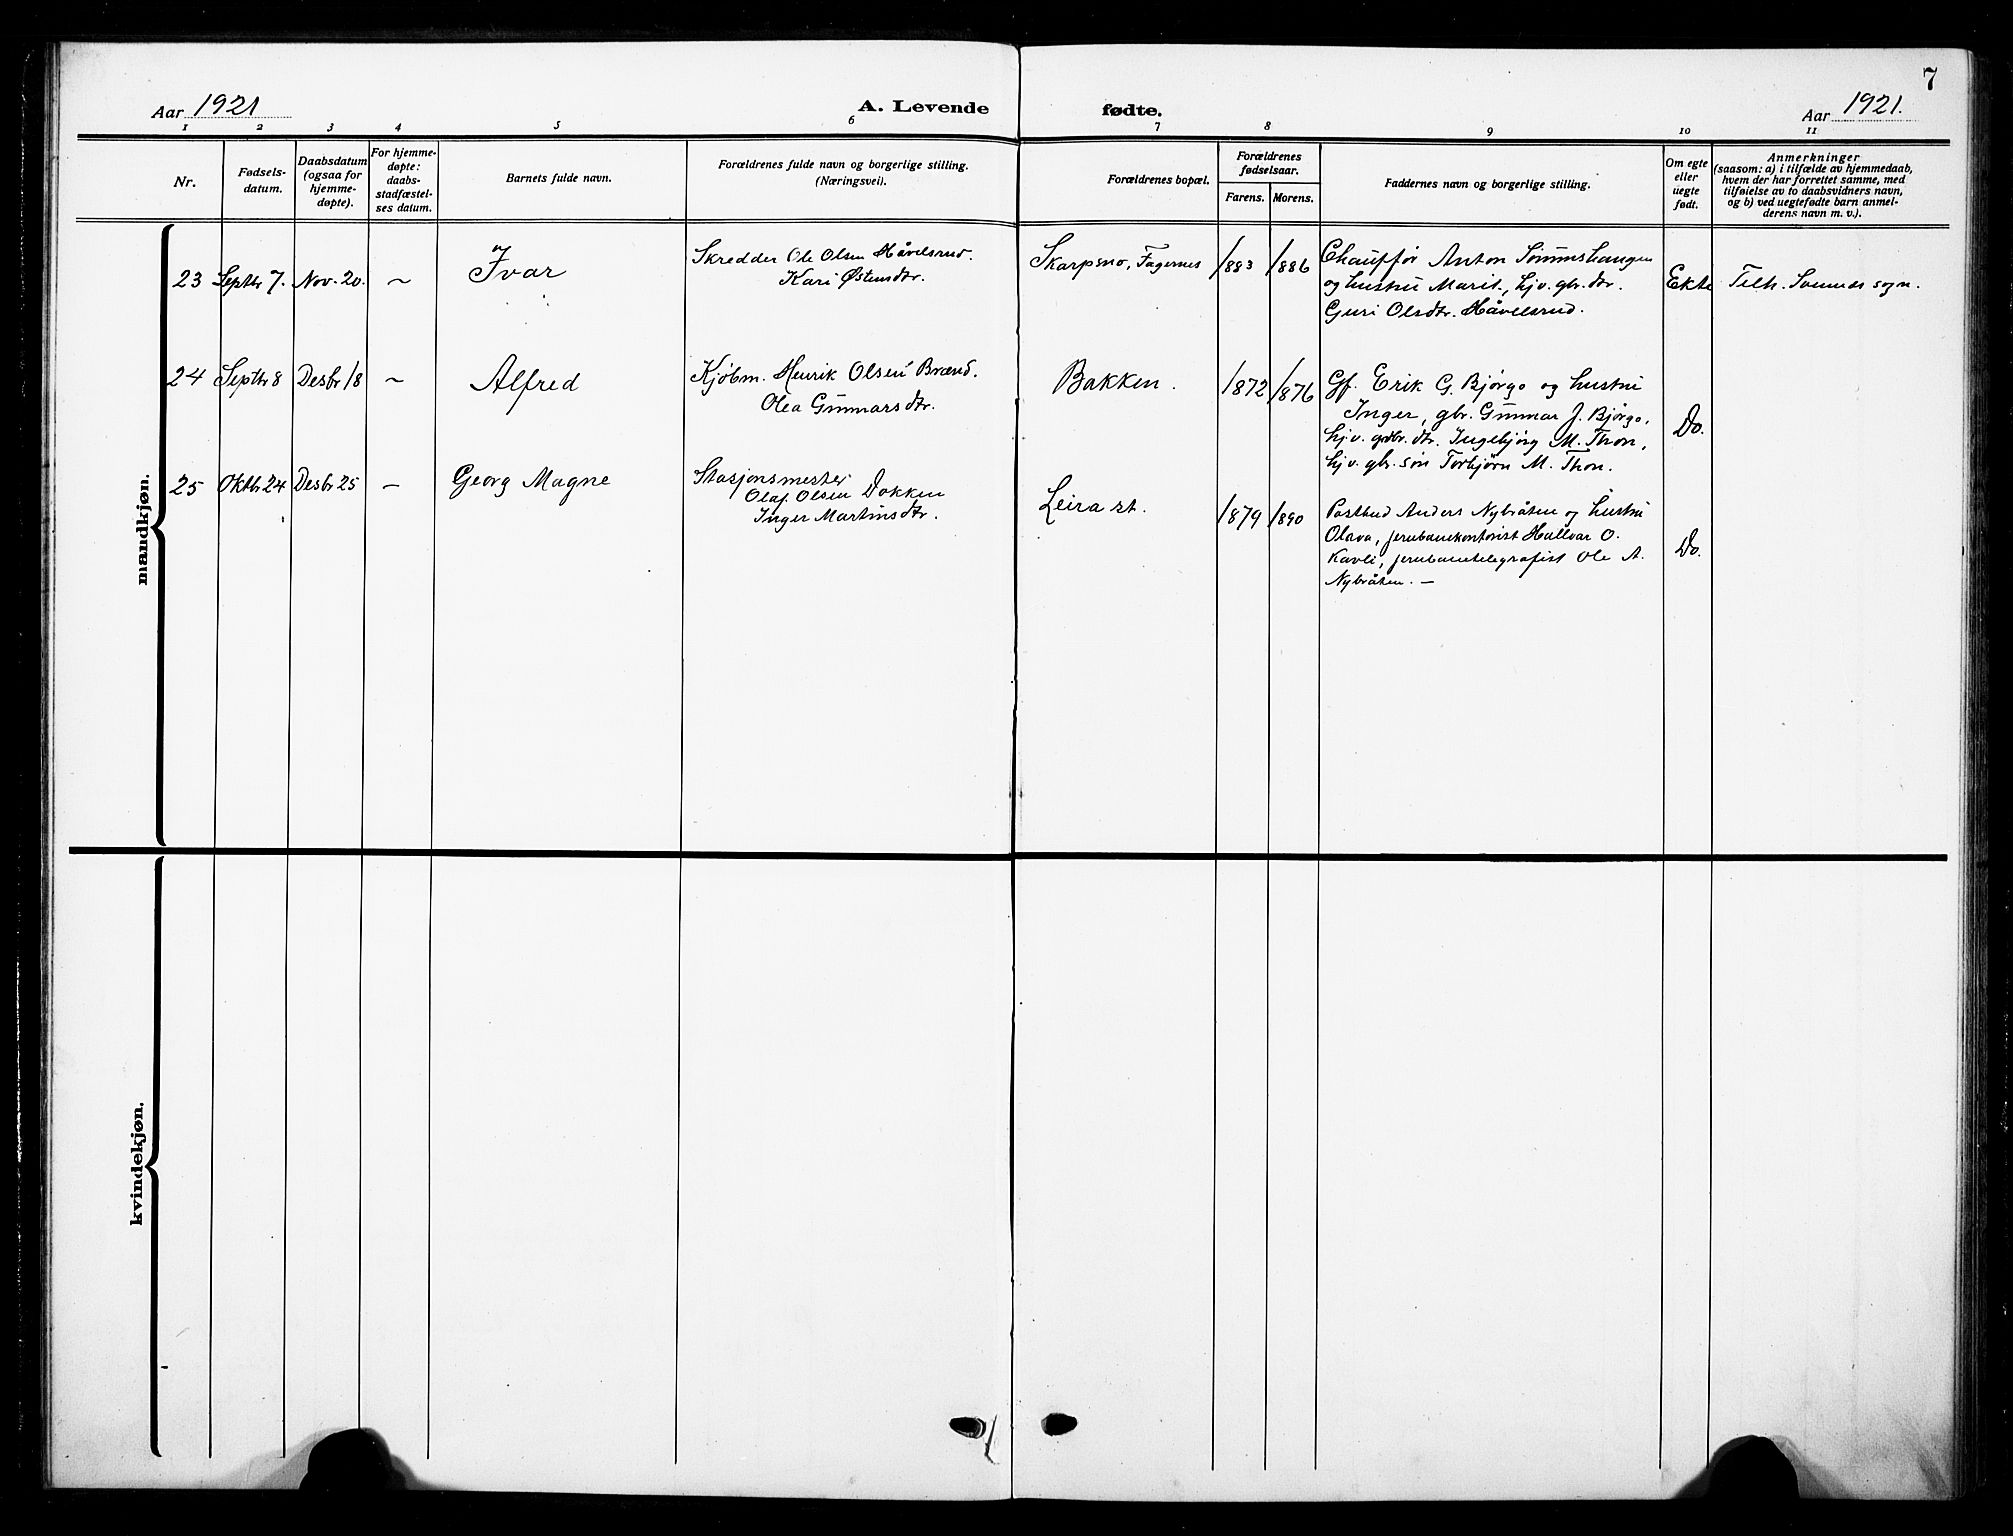 7
Aar 1921
A. Levende
fødte.
Aar 1921.
1 2 3 4 5 6 7 8 9 10 11
Nr.
Fødsels-
datum.
Daabsdatum
(ogsaa for
hjemme-
døpte).
For hjemme-
døpte:
daabs-
stadfæstel-
ses datum.
Barnets fulde navn.
Forældrenes fulde navn og borgerlige stilling.
(Næringsvei).
Forældrenes bopæl.
Forældrenes
fødselsaar.
Farens. Morens.
Faddernes navn og borgerlige stilling.
Om egte
eller
uegte
født.
Anmerkninger
(saasom: a) i tilfælde av hjemmedaab,
hvem der har forrettet samme, med
tilføielse av to daabsvidners navn,
og b) ved uegtefødte barn anmel-
derens navn m. v.).
mandkjøn.
23 Septbr 7. Nov. 20. ~ Ivar
Skredder Ole Olsen Håvelsrud.
Kari Østensdtr.
Skarpsno, Fagernes 1883 1886
Chauffør Anton
og hustru Marit, hjv. gbr. dtr.
Guri Olsdtr. Håvelsrud.
Ekte
Tilh. sogn.
24 Septbr 8 Desbr 18 ~ Alfred
Kjøbm. Henrik Olsen Brænd.
Olea Gunnarsdtr.
Bakken. 1872 1876
Gf. Erik G. Bjørgo og hustru
Inger, gbr. Gunnar J. Bjørgo,
hjv. gdbr. dtr. Ingebjørg M. Thon,
hjv. gbr. søn Torbjørn M. Thon.
Do.
25 Oktbr 24 Desbr 25 – Georg Magne
Stasjonsmester
Olaf Olsen Dokken
Inger Martinsdtr.
Leira st. 1879 1890
Postbud Anders Nybråten og hustru
Olava, jernbanekontorist Hallvar O.
Kavli, jernbanetelegrafist Ole A.
Nybråten. —
Do.
kvindekjøn.